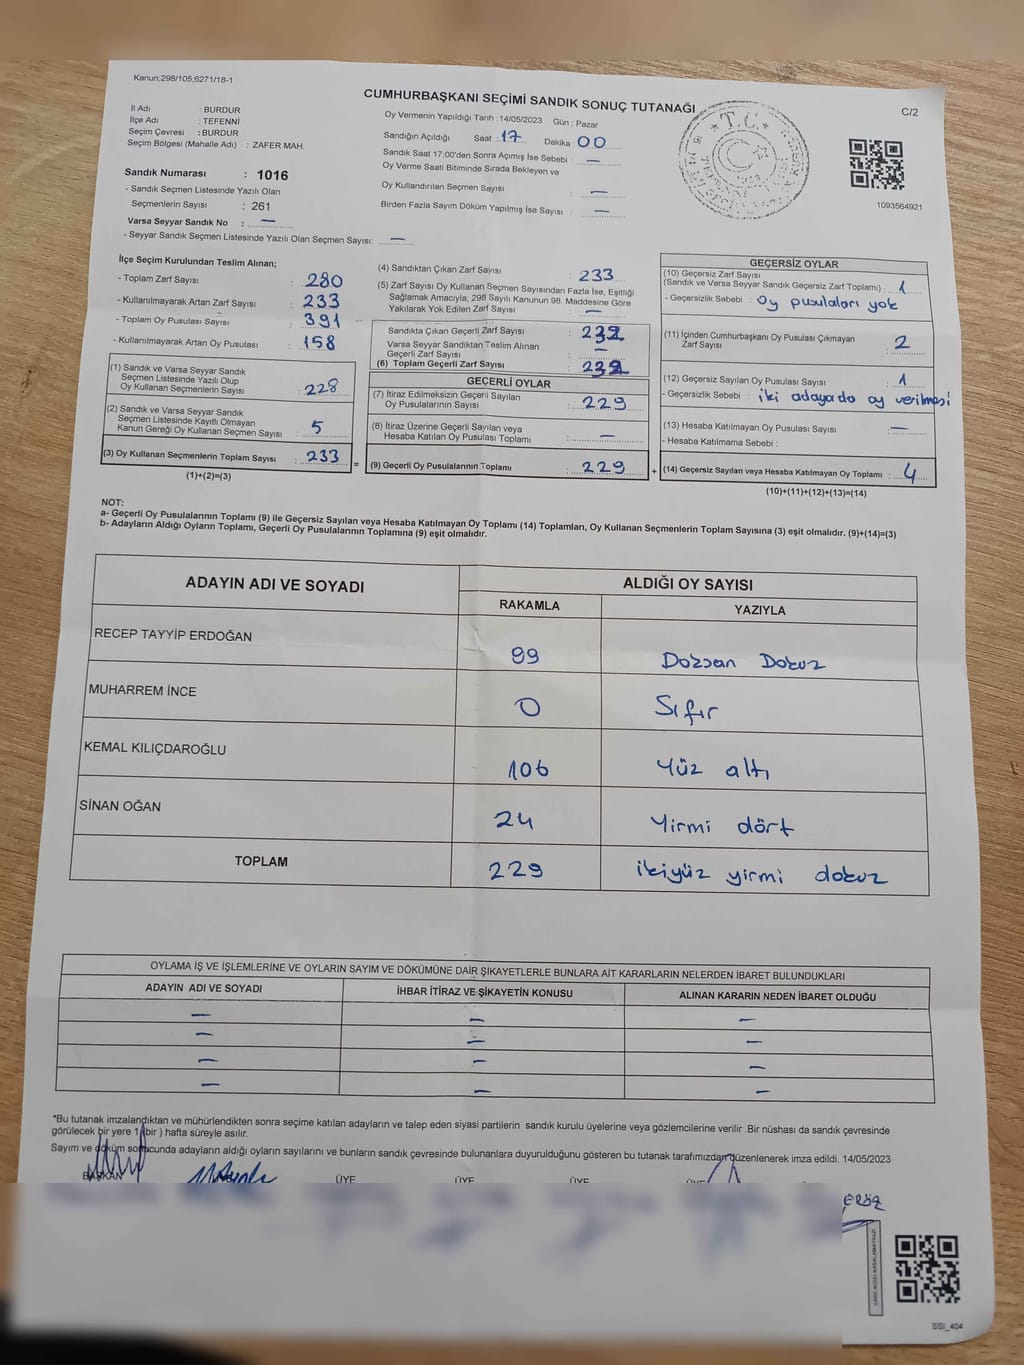 Kanun:298/105;6271/18-1
CUMHURBAŞKANI SEÇİMİ SANDIK SONUÇ TUTANAĞI
C/2
İl Adı : BURDUR
İlçe Adı : TEFENNİ
Seçim Çevresi : BURDUR
Seçim Bölgesi (Mahalle Adı) : ZAFER MAH.
Sandık Numarası : 1016
- Sandık Seçmen Listesinde Yazılı Olan
Seçmenlerin Sayısı : 261
Varsa Seyyar Sandık No : —
- Seyyar Sandık Seçmen Listesinde Yazılı Olan Seçmen Sayısı: —
Oy Vermenin Yapıldığı Tarih : 14/05/2023 Gün : Pazar
Sandığın Açıldığı Saat : 17 Dakika : 00
Sandık Saat 17:00'den Sonra Açımış İse Sebebi : —
Oy Verme Saati Bitiminde Sırada Bekleyen ve
Oy Kullandırılan Seçmen Sayısı : —
Birden Fazla Sayım Döküm Yapılmış İse Sayısı : —
T.C.
1093564921
İlçe Seçim Kurulundan Teslim Alınan;
- Toplam Zarf Sayısı : 280
- Kullanılmayarak Artan Zarf Sayısı : 233
- Toplam Oy Pusulası Sayısı : 391
- Kullanılmayarak Artan Oy Pusulası : 158
(1) Sandık ve Varsa Seyyar Sandık
Seçmen Listesinde Yazılı Olup
Oy Kullanan Seçmenlerin Sayısı : 228
(2) Sandık ve Varsa Seyyar Sandık
Seçmen Listesinde Kayıtlı Olmayan
Kanun Gereği Oy Kullanan Seçmen Sayısı : 5
(3) Oy Kullanan Seçmenlerin Toplam Sayısı : 233
(1)+(2)=(3)
(4) Sandıktan Çıkan Zarf Sayısı : 233
(5) Zarf Sayısı Oy Kullanan Seçmen Sayısından Fazla İse, Eşitliği
Sağlamak Amacıyla; 298 Sayılı Kanunun 98. Maddesine Göre
Yakılarak Yok Edilen Zarf Sayısı : —
Sandıkta Çıkan Geçerli Zarf Sayısı : 232
Varsa Seyyar Sandıktan Teslim Alınan
Geçerli Zarf Sayısı : —
(6) Toplam Geçerli Zarf Sayısı : 232
GEÇERLİ OYLAR
(7) İtiraz Edilmeksizin Geçerli Sayılan
Oy Pusulalarının Sayısı : 229
(8) İtiraz Üzerine Geçerli Sayılan veya
Hesaba Katılan Oy Pusulası Toplamı : —
= (9) Geçerli Oy Pusulalarının Toplamı : 229 +
GEÇERSİZ OYLAR
(10) Geçersiz Zarf Sayısı
(Sandık ve Varsa Seyyar Sandık Geçersiz Zarf Toplamı) : 1
- Geçersizlik Sebebi : Oy pusulaları yok
(11) İçinden Cumhurbaşkanı Oy Pusulası Çıkmayan
Zarf Sayısı : 2
(12) Geçersiz Sayılan Oy Pusulası Sayısı : 1
- Geçersizlik Sebebi : iki adayada oy verilmesi
(13) Hesaba Katılmayan Oy Pusulası Sayısı : —
- Hesaba Katılmama Sebebi :
(14) Geçersiz Sayılan veya Hesaba Katılmayan Oy Toplamı : 4
(10)+(11)+(12)+(13)=(14)
NOT:
a- Geçerli Oy Pusulalarının Toplamı (9) ile Geçersiz Sayılan veya Hesaba Katılmayan Oy Toplamı (14) Toplamları, Oy Kullanan Seçmenlerin Toplam Sayısına (3) eşit olmalıdır. (9)+(14)=(3)
b- Adayların Aldığı Oyların Toplamı, Geçerli Oy Pusulalarının Toplamına (9) eşit olmalıdır.
ADAYIN ADI VE SOYADI
ALDIĞI OY SAYISI
RAKAMLA YAZIYLA
RECEP TAYYİP ERDOĞAN 99 Doksan Dokuz
MUHARREM İNCE 0 Sıfır
KEMAL KILIÇDAROĞLU 106 Yüz altı
SİNAN OĞAN 24 Yirmi dört
TOPLAM 229 ikiyüz yirmi dokuz
OYLAMA İŞ VE İŞLEMLERİNE VE OYLARIN SAYIM VE DÖKÜMÜNE DAİR ŞİKAYETLERLE BUNLARA AİT KARARLARIN NELERDEN İBARET BULUNDUKLARI
ADAYIN ADI VE SOYADI İHBAR İTİRAZ VE ŞİKAYETİN KONUSU ALINAN KARARIN NEDEN İBARET OLDUĞU
— — —
— — —
— — —
— — —
*Bu tutanak imzalandıktan ve mühürlendikten sonra seçime katılan adayların ve talep eden siyasi partilerin sandık kurulu üyelerine veya gözlemcilerine verilir .Bir nüshası da sandık çevresinde
görülecek bir yere 1 (bir ) hafta süreyle asılır.
Sayım ve döküm sonucunda adayların aldığı oyların sayılarını ve bunların sandık çevresinde bulunanlara duyurulduğunu gösteren bu tutanak tarafımızdan düzenlenerek imza edildi. 14/05/2023
BAŞKAN ÜYE ÜYE ÜYE ÜYE
SSI_404